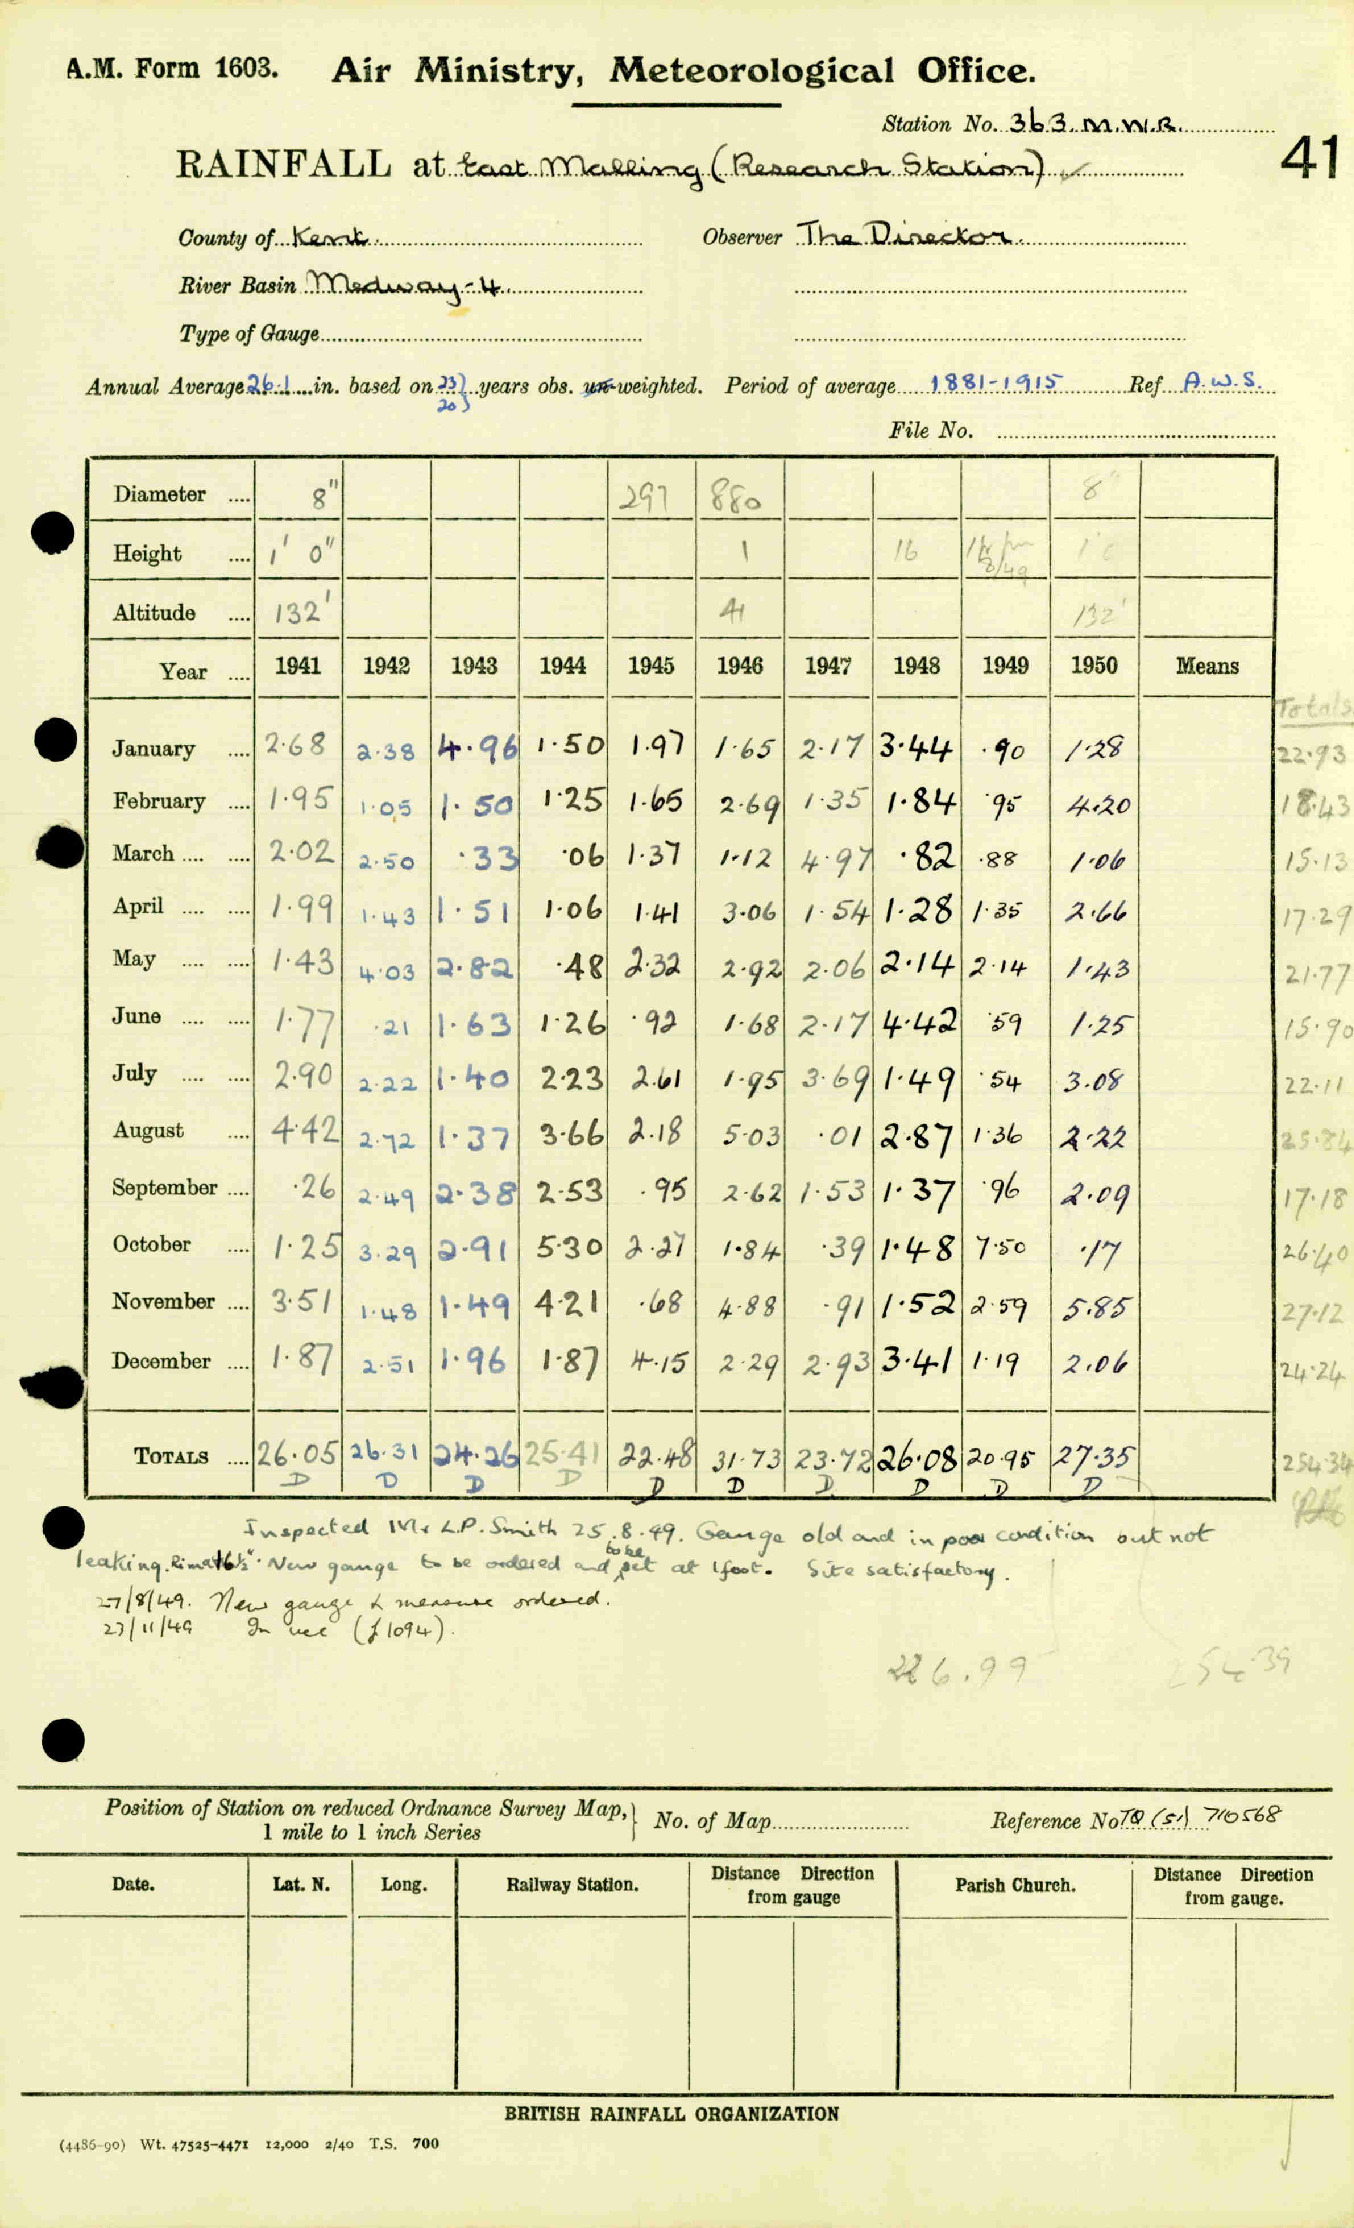 A.M. Form 1603. Air Ministry, Meteorological Office.
Station No. 363. M.W.R.
41
RAINFALL at East Malling (Research Station) ✓
County of Kent. Observer The Director.
River Basin Medway - 4
Type of Gauge
Annual Average 26.1 in. based on 23} years obs. un-weighted. Period of average 1881-1915 Ref A.W.S.
20}
File No.
Diameter .... 8" 297 880 8"
Height .... 1' 0" 1 16 1'0
8/49
Altitude .... 132' 41 132'
Year .... 1941 1942 1943 1944 1945 1946 1947 1948 1949 1950 Means
Totals
January .... 2.68 2.38 4.96 1.50 1.97 1.65 2.17 3.44 .90 1.28 22.93
February .... 1.95 1.05 1.50 1.25 1.65 2.69 1.35 1.84 .95 4.20 18.43
March .... .... 2.02 2.50 .33 .06 1.37 1.12 4.97 .82 .88 1.06 15.13
April .... .... 1.99 1.43 1.51 1.06 1.41 3.06 1.54 1.28 1.35 2.66 17.29
May .... .... 1.43 4.03 2.82 .48 2.32 2.92 2.06 2.14 2.14 1.43 21.77
June .... .... 1.77 .21 1.63 1.26 .92 1.68 2.17 4.42 .59 1.25 15.90
July .... .... 2.90 2.22 1.40 2.23 2.61 1.95 3.69 1.49 .54 3.08 22.11
August .... 4.42 2.72 1.37 3.66 2.18 5.03 .01 2.87 1.36 2.22 25.84
September .... .26 2.49 2.38 2.53 .95 2.62 1.53 1.37 .96 2.09 17.18
October .... 1.25 3.29 2.91 5.30 2.27 1.84 .39 1.48 7.50 .17 26.40
November .... 3.51 1.48 1.49 4.21 .68 4.88 .91 1.52 2.59 5.85 27.12
December .... 1.87 2.51 1.96 1.87 4.15 2.29 2.93 3.41 1.19 2.06 24.24
TOTALS .... 26.05 26.31 24.26 25.41 22.48 31.73 23.72 26.08 20.95 27.35 254.34
D D D D D D D D D D
Inspected Mr L.P. Smith 25.8.49. Gauge old and in poor condition but not
leaking. Rim at 16½". New gauge to be ordered and to be set at 1 foot. Site satisfactory.
27/8/49. New gauge & measure ordered.
23/11/49 In use (£1094).
226.99 254.39
Position of Station on reduced Ordnance Survey Map,} No. of Map Reference No TQ (51) 710568
1 mile to 1 inch Series
Date. Lat. N. Long. Railway Station. Distance Direction from gauge Parish Church. Distance Direction from gauge.
BRITISH RAINFALL ORGANIZATION
(4486-90) Wt. 47525-4471 12,000 2/40 T.S. 700